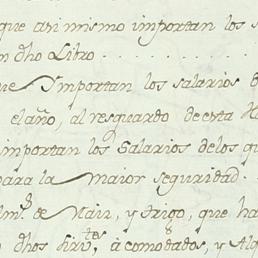 que asi mismo importan los s
n dho Libro . . . . . . . .
ue Ymportan los salarios
el año, al resguardo de esta
importan los Salarios delos qu
para la maior seguridad.
de Maiz, y trigo, que ha
dhos sirvtes, acomodados, y